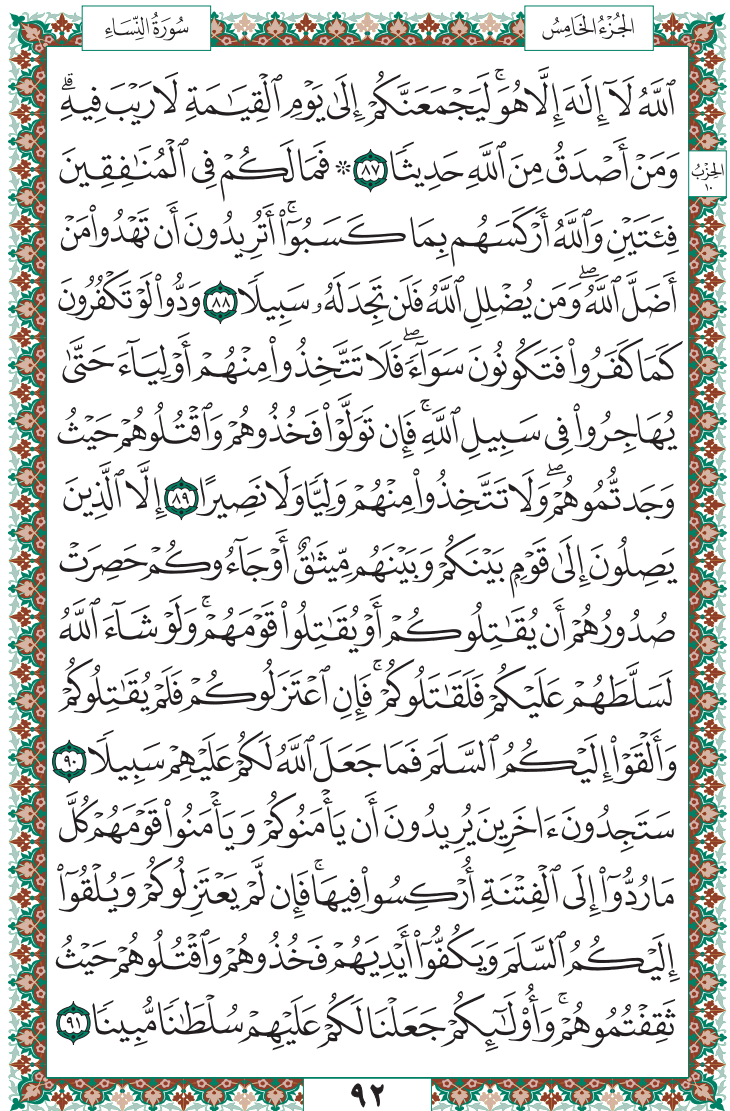 الجُزْءُ الخَامِسُ
سُورَةُ النِّسَاءِ
ٱللَّهُ لَآ إِلَٰهَ إِلَّا هُوَۚ لَيَجْمَعَنَّكُمْ إِلَىٰ يَوْمِ ٱلْقِيَٰمَةِ لَا رَيْبَ فِيهِۗ
وَمَنْ أَصْدَقُ مِنَ ٱللَّهِ حَدِيثًا ٨٧ * فَمَا لَكُمْ فِى ٱلْمُنَٰفِقِينَ
الحِزْبُ
١٠
فِئَتَيْنِ وَٱللَّهُ أَرْكَسَهُم بِمَا كَسَبُوٓا۟ۚ أَتُرِيدُونَ أَن تَهْدُوا۟ مَنْ
أَضَلَّ ٱللَّهُۖ وَمَن يُضْلِلِ ٱللَّهُ فَلَن تَجِدَ لَهُۥ سَبِيلًا ٨٨ وَدُّوا۟ لَوْ تَكْفُرُونَ
كَمَا كَفَرُوا۟ فَتَكُونُونَ سَوَآءًۖ فَلَا تَتَّخِذُوا۟ مِنْهُمْ أَوْلِيَآءَ حَتَّىٰ
يُهَاجِرُوا۟ فِى سَبِيلِ ٱللَّهِۚ فَإِن تَوَلَّوْا۟ فَخُذُوهُمْ وَٱقْتُلُوهُمْ حَيْثُ
وَجَدتُّمُوهُمْۖ وَلَا تَتَّخِذُوا۟ مِنْهُمْ وَلِيًّا وَلَا نَصِيرًا ٨٩ إِلَّا ٱلَّذِينَ
يَصِلُونَ إِلَىٰ قَوْمٍۭ بَيْنَكُمْ وَبَيْنَهُم مِّيثَٰقٌ أَوْ جَآءُوكُمْ حَصِرَتْ
صُدُورُهُمْ أَن يُقَٰتِلُوكُمْ أَوْ يُقَٰتِلُوا۟ قَوْمَهُمْۚ وَلَوْ شَآءَ ٱللَّهُ
لَسَلَّطَهُمْ عَلَيْكُمْ فَلَقَٰتَلُوكُمْۚ فَإِنِ ٱعْتَزَلُوكُمْ فَلَمْ يُقَٰتِلُوكُمْ
وَأَلْقَوْا۟ إِلَيْكُمُ ٱلسَّلَمَ فَمَا جَعَلَ ٱللَّهُ لَكُمْ عَلَيْهِمْ سَبِيلًا ٩٠
سَتَجِدُونَ ءَاخَرِينَ يُرِيدُونَ أَن يَأْمَنُوكُمْ وَيَأْمَنُوا۟ قَوْمَهُمْ كُلَّ
مَا رُدُّوٓا۟ إِلَى ٱلْفِتْنَةِ أُرْكِسُوا۟ فِيهَاۚ فَإِن لَّمْ يَعْتَزِلُوكُمْ وَيُلْقُوٓا۟
إِلَيْكُمُ ٱلسَّلَمَ وَيَكُفُّوٓا۟ أَيْدِيَهُمْ فَخُذُوهُمْ وَٱقْتُلُوهُمْ حَيْثُ
ثَقِفْتُمُوهُمْۚ وَأُو۟لَٰٓئِكُمْ جَعَلْنَا لَكُمْ عَلَيْهِمْ سُلْطَٰنًا مُّبِينًا ٩١
٩٢